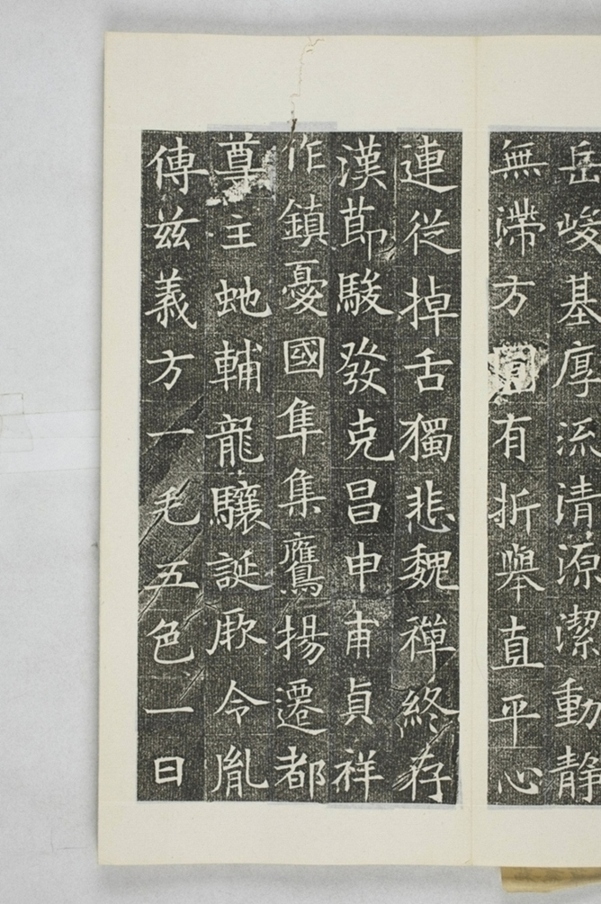 岳峻基厚流清源潔動静
無滯方圓有折舉直平心
連從掉舌獨悲魏禪終存
漢節駿發克昌申甫貞祥
作鎮憂國隼集鷹揚遷都
尊主虵輔龍驤誕厥令胤
傳茲義方一毛五色一日